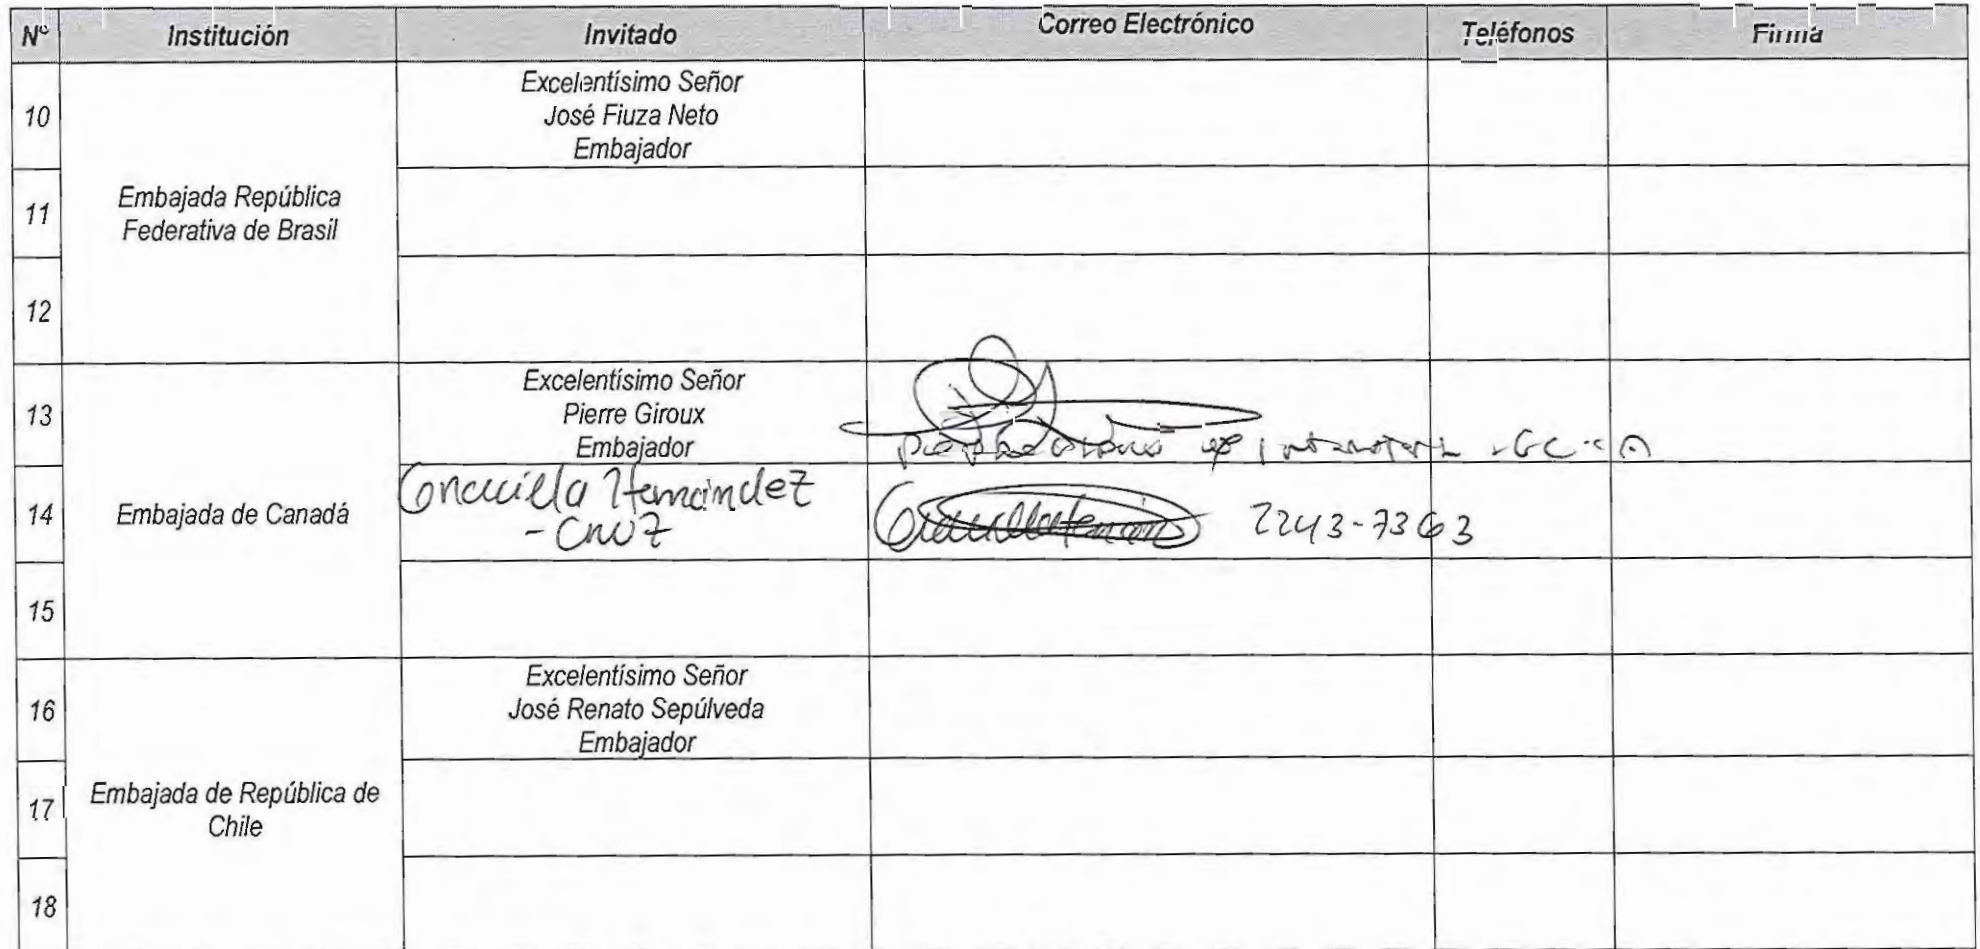 Nº Institución Invitado Correo Electrónico Teléfonos Firma
10
Embajada República
Federativa de Brasil
Excelentísimo Señor
José Fiuza Neto
Embajador
11
12
13
Embajada de Canadá
Excelentísimo Señor
Pierre Giroux
Embajador
14
Hernández
- Cruz
2243-7363
15
16
Embajada de República de
Chile
Excelentísimo Señor
José Renato Sepúlveda
Embajador
17
18